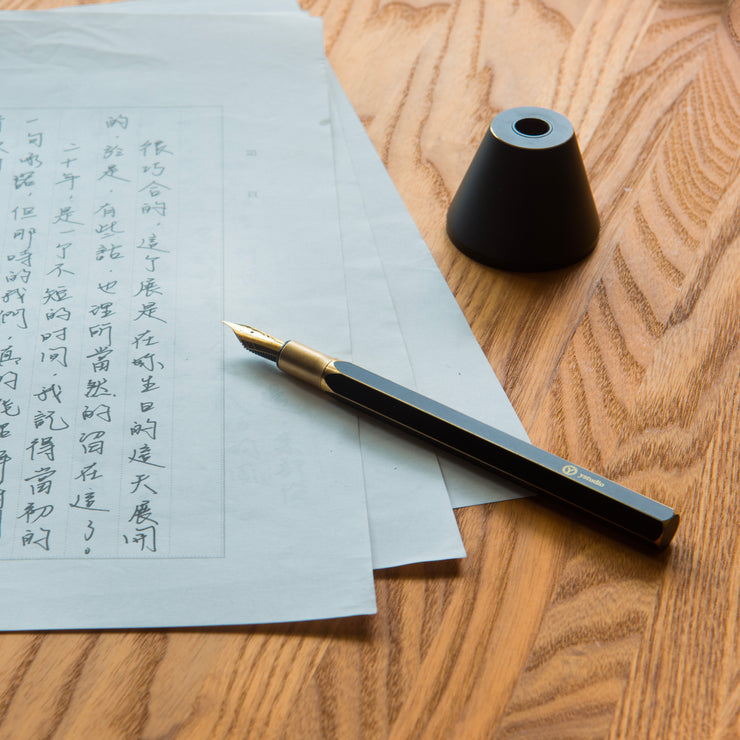 第 頁
很巧合的，這个展是在妳生日的這天展開
的，於是，有些話，也理所當然的留在這了。
二十年，是一个不短的时间，我記得當初的
一句承諾，但那時的我們，真的能
ystudio